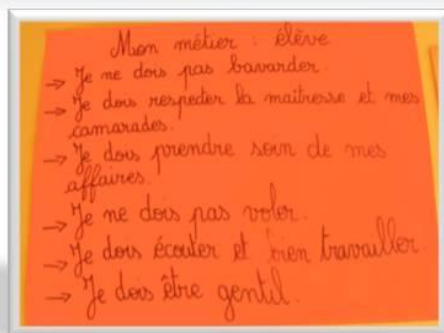 Mon métier : élève
→ Je ne dois pas bavarder.
→ Je dois respecter la maîtresse et mes
camarades.
→ Je dois prendre soin de mes
affaires.
→ Je ne dois pas voler.
→ Je dois écouter et bien travailler.
→ Je dois être gentil.